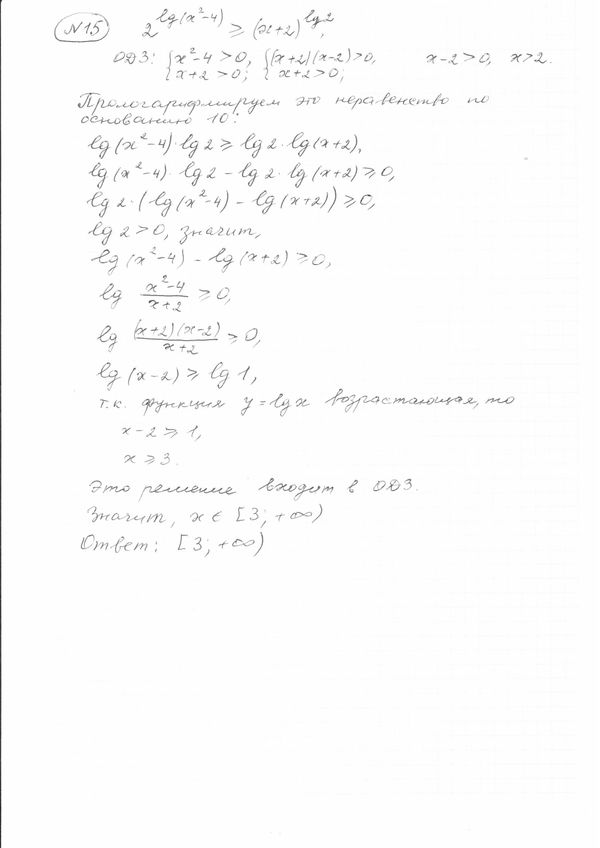 №15 2^{lg(x²-4)} ⩾ (x+2)^{lg2},
ОДЗ: {x²-4>0, x+2>0; {(x+2)(x-2)>0, x+2>0; x-2>0, x>2.
Прологарифмируем это неравенство по
основанию 10:
lg(x²-4)·lg2 ⩾ lg2·lg(x+2),
lg(x²-4)·lg2 - lg2·lg(x+2) ⩾ 0,
lg2·(lg(x²-4) - lg(x+2)) ⩾ 0,
lg2>0, значит,
lg(x²-4) - lg(x+2) ⩾ 0,
lg \frac{x²-4}{x+2} ⩾ 0,
lg \frac{(x+2)(x-2)}{x+2} ⩾ 0,
lg(x-2) ⩾ lg1,
т.к. функция y=lgx возрастающая, то
x-2 ⩾ 1,
x ⩾ 3.
Это решение входит в ОДЗ.
Значит, x ∈ [3; +∞)
Ответ: [3; +∞)